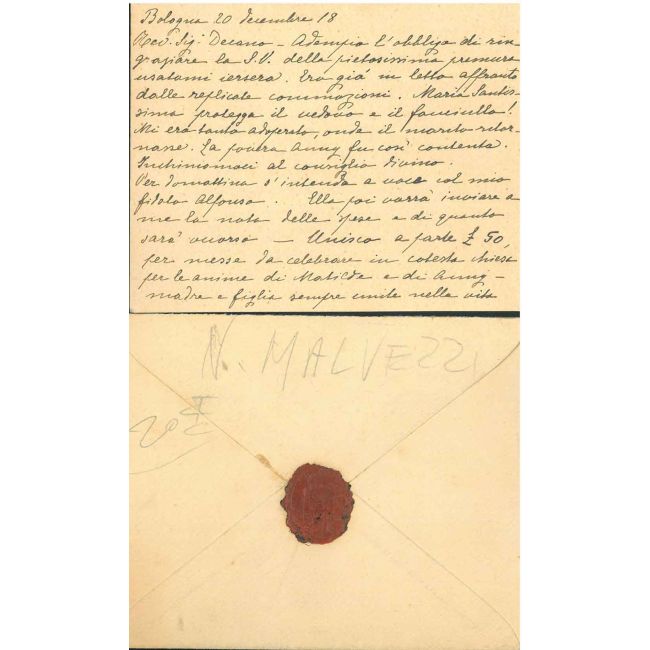 Bologna 20 decembre 18
Rev. Sig: Decano – Adempio l'obbligo di rin-
graziare la S.V. della pietosissima premura
usatami iersera. Ero già in letto affranto
dalle replicate commozioni. Maria Santis-
sima protegga il vedovo e il fanciullo!
Mi ero tanto adoperato, onde il marito ritor-
nasse. La povera Anny fu così contenta.
Inchiniamoci al consiglio divino.
Per domattina s'intenda a voce col mio
fidato Alfonso. Ella poi vorrà inviare a
me la nota delle spese e di quanto
sarà occorso – Unisco a parte £ 50,
per messe da celebrare in cotesta chiesa
per le anime di Matilde e di Anny –
madre e figlia sempre unite nella vita
N. MALVEZZI
20 £